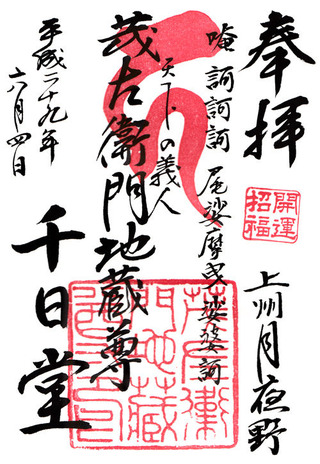 奉拝
開運
招福
上州月夜野
唵 訶訶訶 尾娑摩曳娑婆訶
天下の義人
茂左衛門地蔵尊
茂左衛
門地藏
千日堂
平成二十九年
六月四日